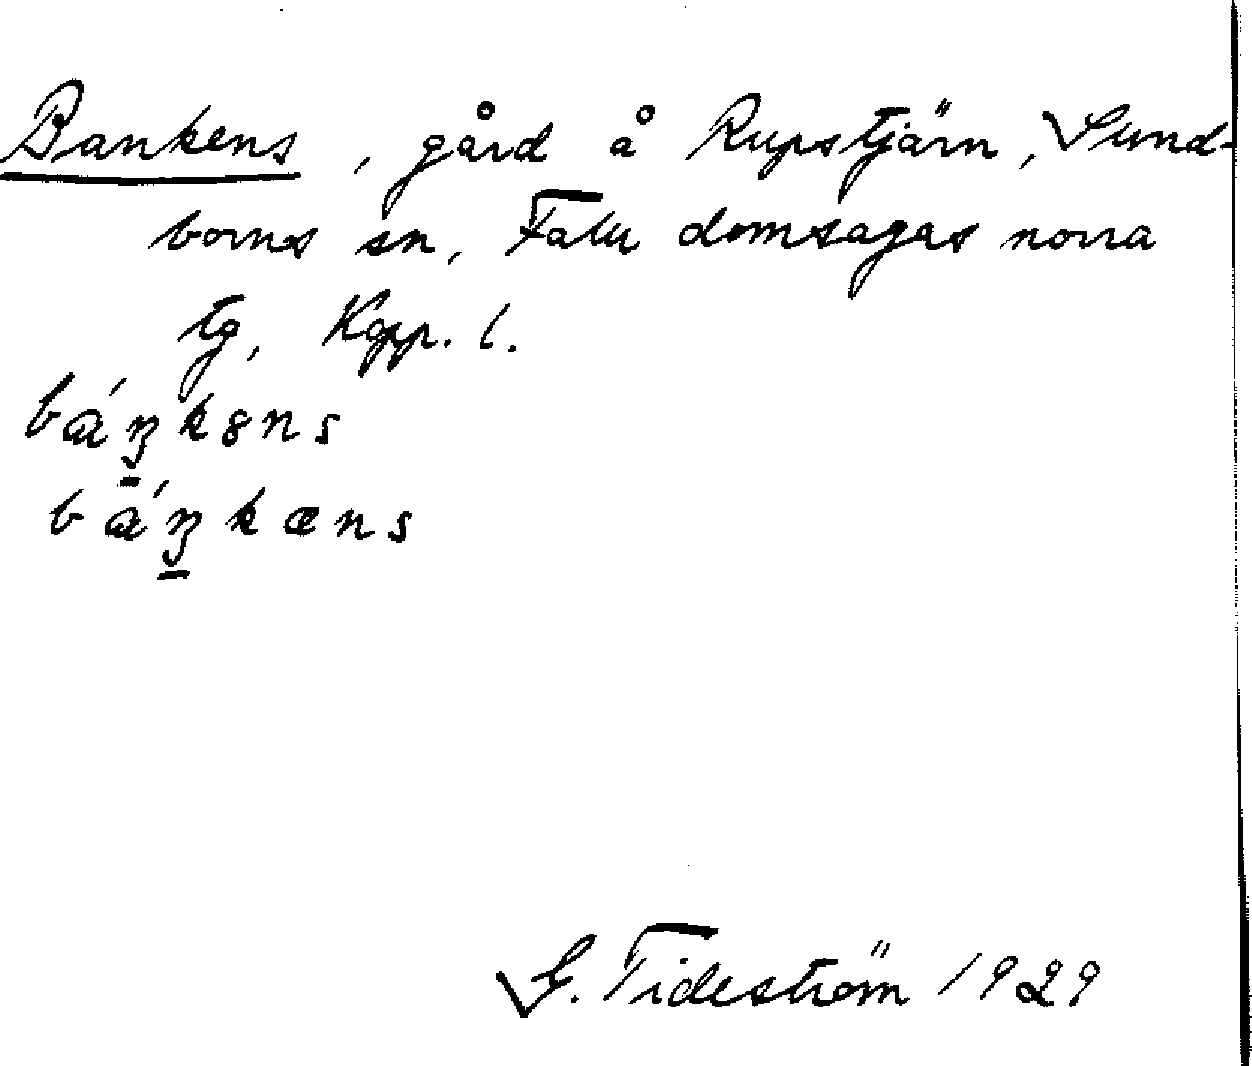 Bankens, gård å Rupstjärn, Sund-
borns sn, Falu domsagas norra
tg, Kopp. l.
báŋ̱kɘns
báŋ̱kæns
G. Tideström 1929